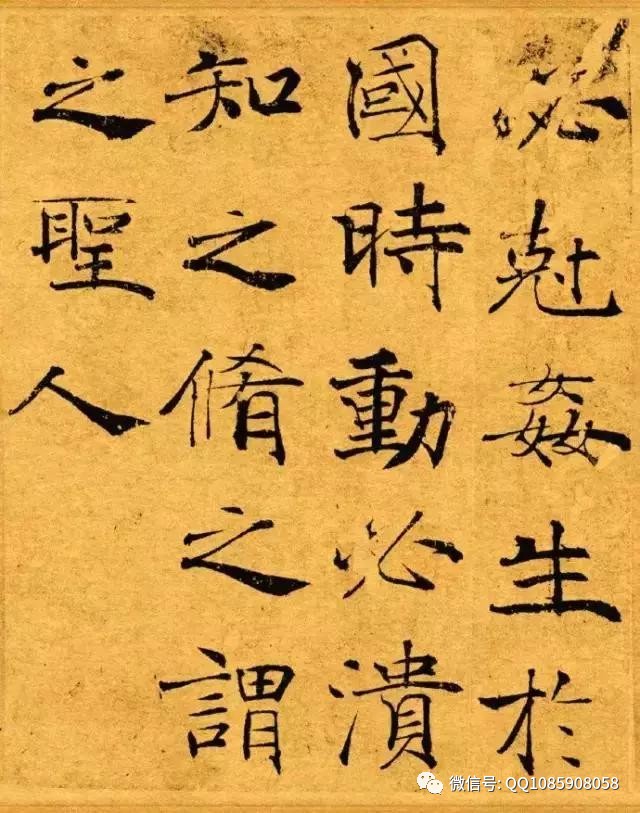 必剋姦生於
國時動必潰
知之脩之謂
之聖人
微信号: QQ1085908058